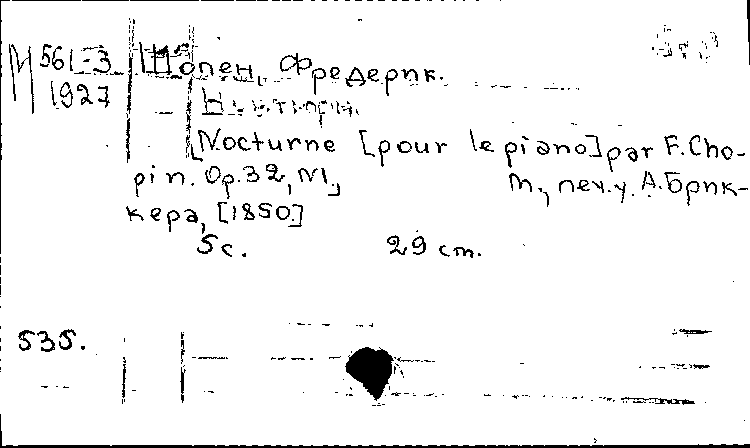 М 561-3 Шопен, Фредерик.
1927 Ноктюрн.
[Nocturne [pour le piano] par F. Cho-
pin. Op. 32, N1.
М., печ. у. А. Брик-
кера, [1850]
5 с. 29 cm.
535.